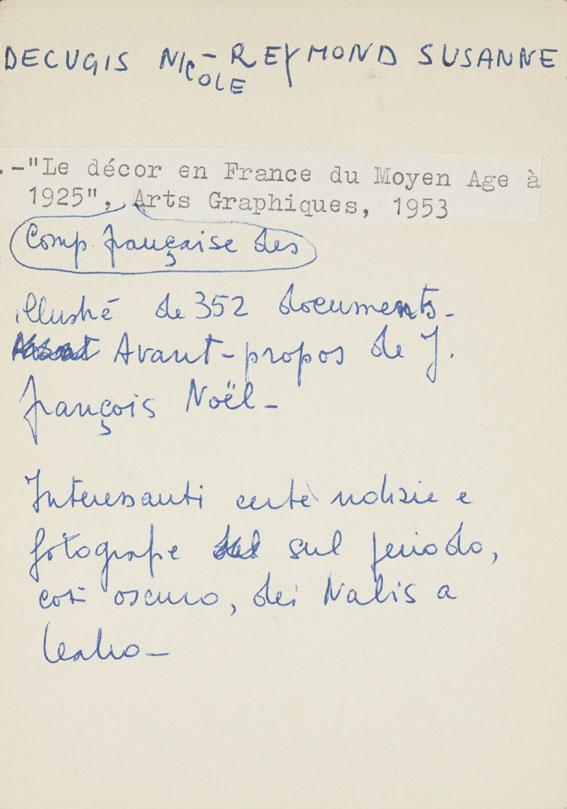 DECUGIS NICOLE - REYMOND SUSANNE
.-"Le décor en France du Moyen Age à
1925", Arts Graphiques, 1953
Comp. française des
illustré de 352 documents -
Avant-propos de J.
François Noël -
Interessanti certe notizie e
fotografie sul periodo,
così oscuro, dei Nabis a
teatro -